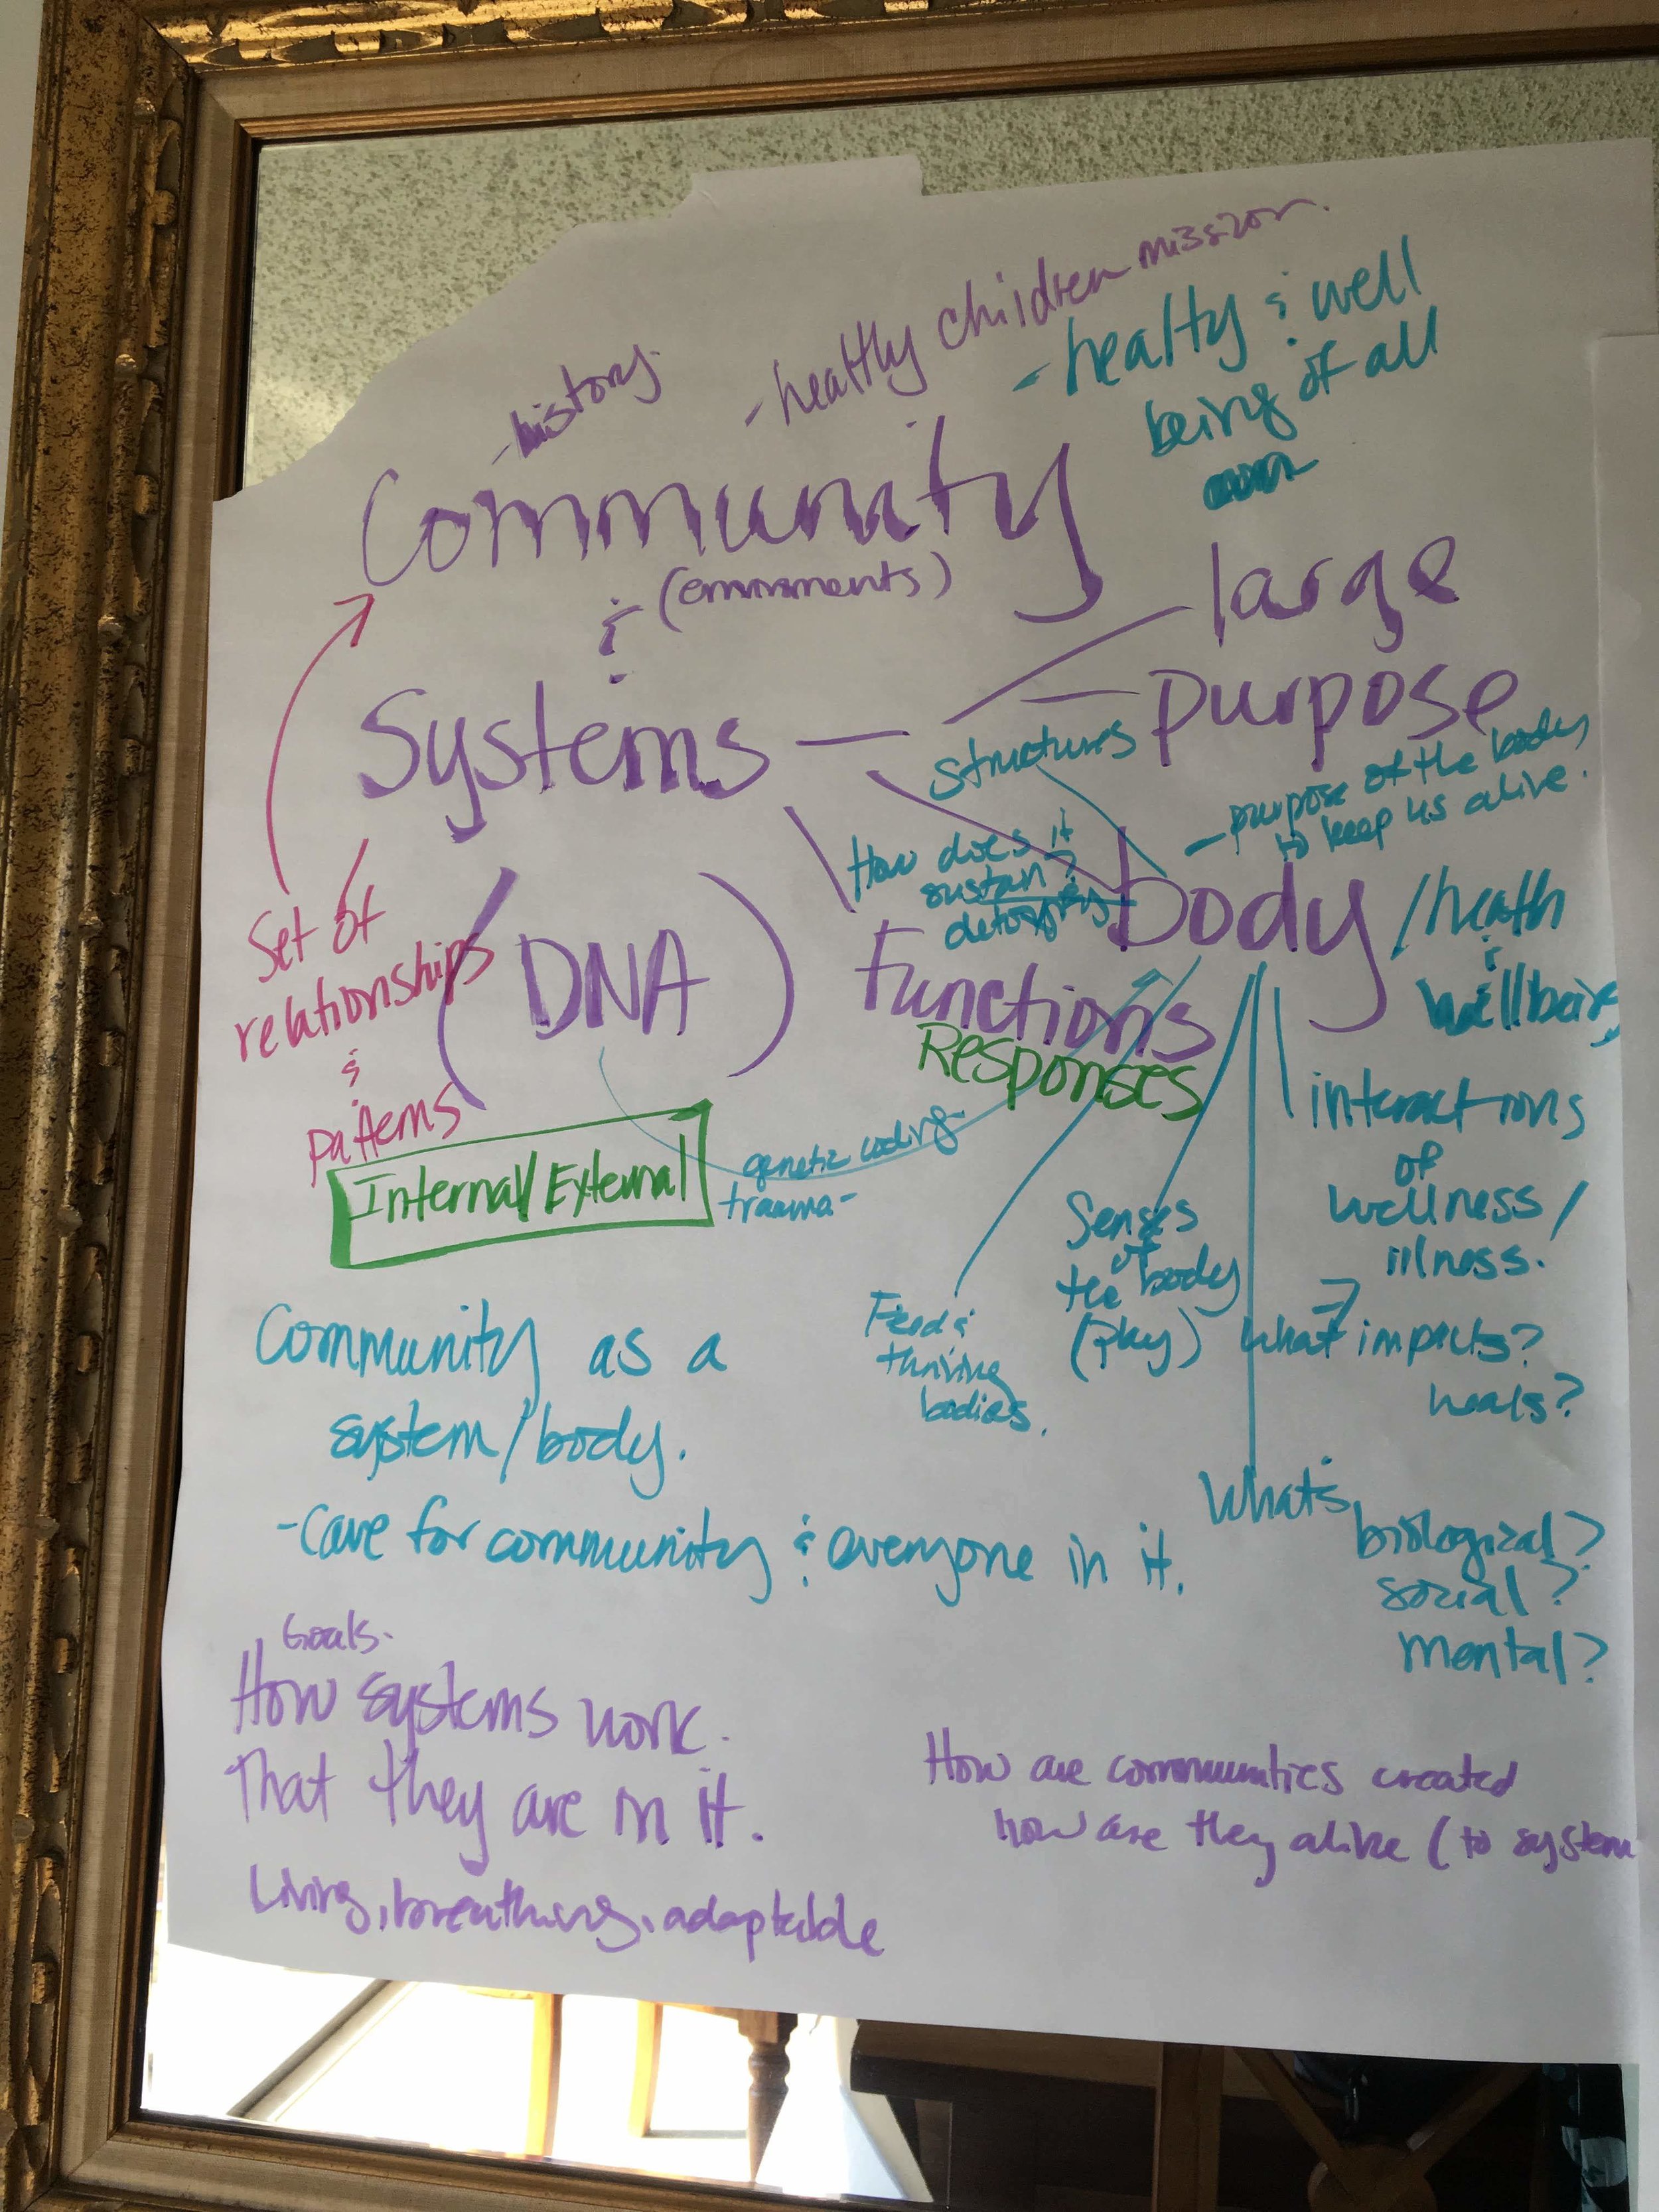 - history.
- healthy children mission.
- healty & well
being of all
Community
& (environments)
Systems
- large
- purpose
structures
- purpose of the body
to keep us alive.
How does it
sustan?
body
/heath
&
wellbeing
Set of
relationships
&
patterns
(DNA)
Functions
Responses
Internal/External
genetic coding-
trauma-
interactions
of
wellness/
illness.
Senses
of
the body
(play)
Feed &
thriving
bodies.
what impacts?
heals?
Community as a
system/body.
- Care for community & everyone in it.
Whats
biological?
social?
mental?
Goals.
How systems work.
That they are in it.
Living, breathing, adaptable
How are communities created
how are they alike (to system